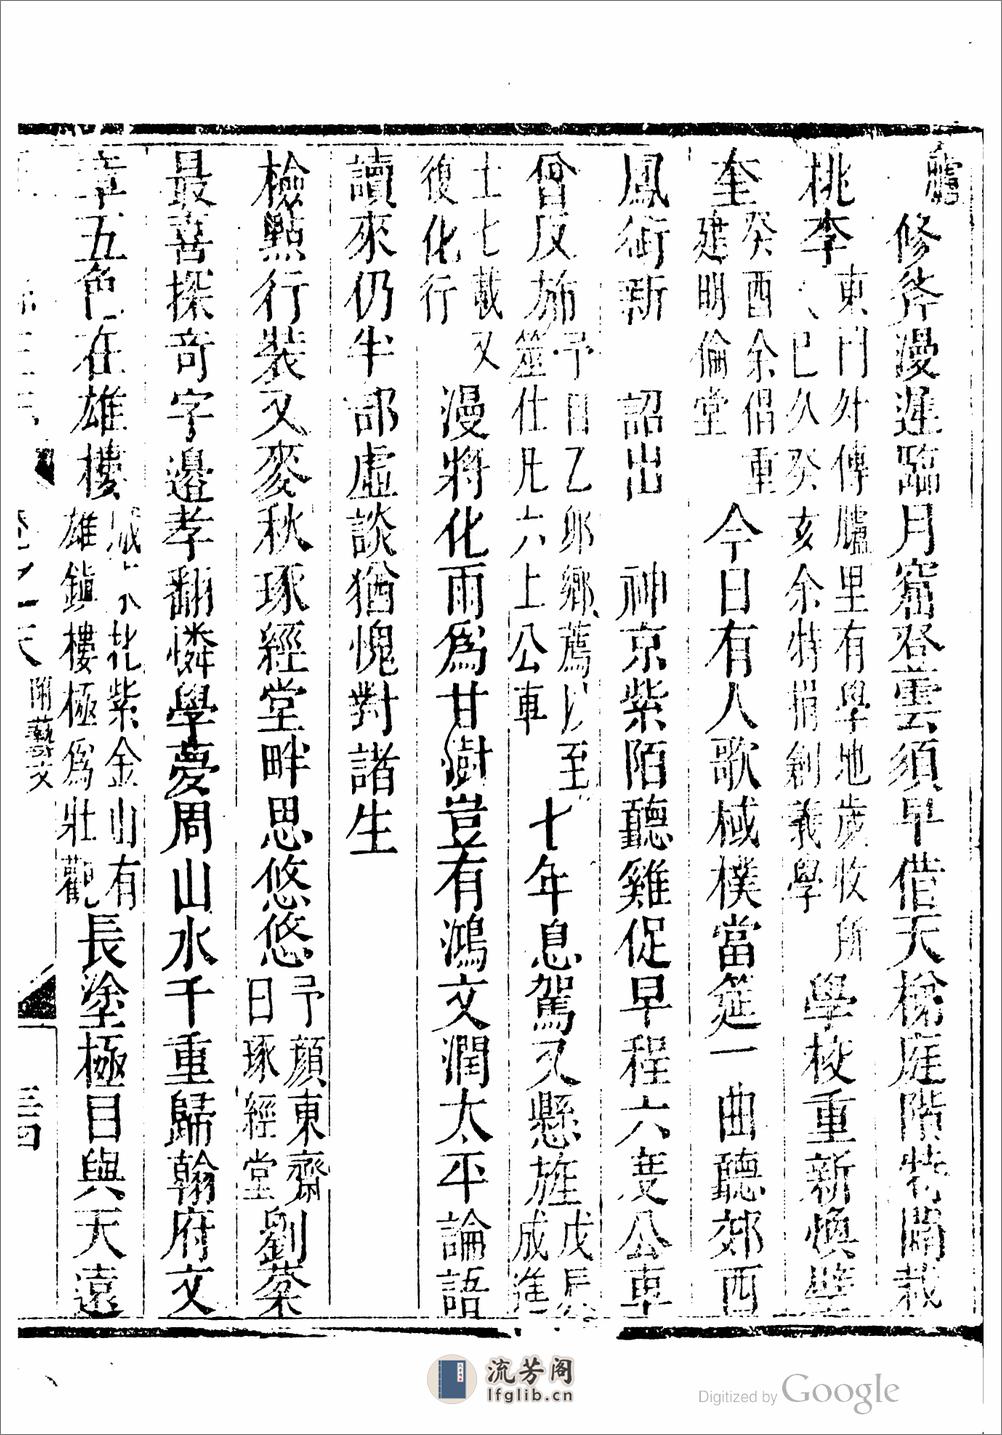 臚　修斧漫遲臨月窟登雲須早借天梯庭階特開栽
桃李東門外傳臚里有學地歲收所　已久癸亥余特捐創義學學校重新煥壁
奎癸酉余倡重建明倫堂　今日有人歌棫樸當筵一曲聽郊西
鳳銜新　詔出　神京紫陌聽雞促早程六度公車
曾反旆予自乙卯鄉薦以至筮仕凡六上公車七年息駕又懸旌戊辰成進
士七載又復化行　漫將化雨爲甘澍豈有鴻文潤太平論語
讀來仍半部虛談猶愧對諸生
檢點行裝又麥秋琢經堂畔思悠悠予顏東齋曰琢經堂劉蕡
最喜探奇字邊孝翻憐學夢周山水千重歸翰府文
章五色在雄樓城　北紫金山有雄鎮樓極爲壯觀長塗極目與天遠
卷之　附藝文
三四
流芳阁
lfglib.cn
Digitized by Google